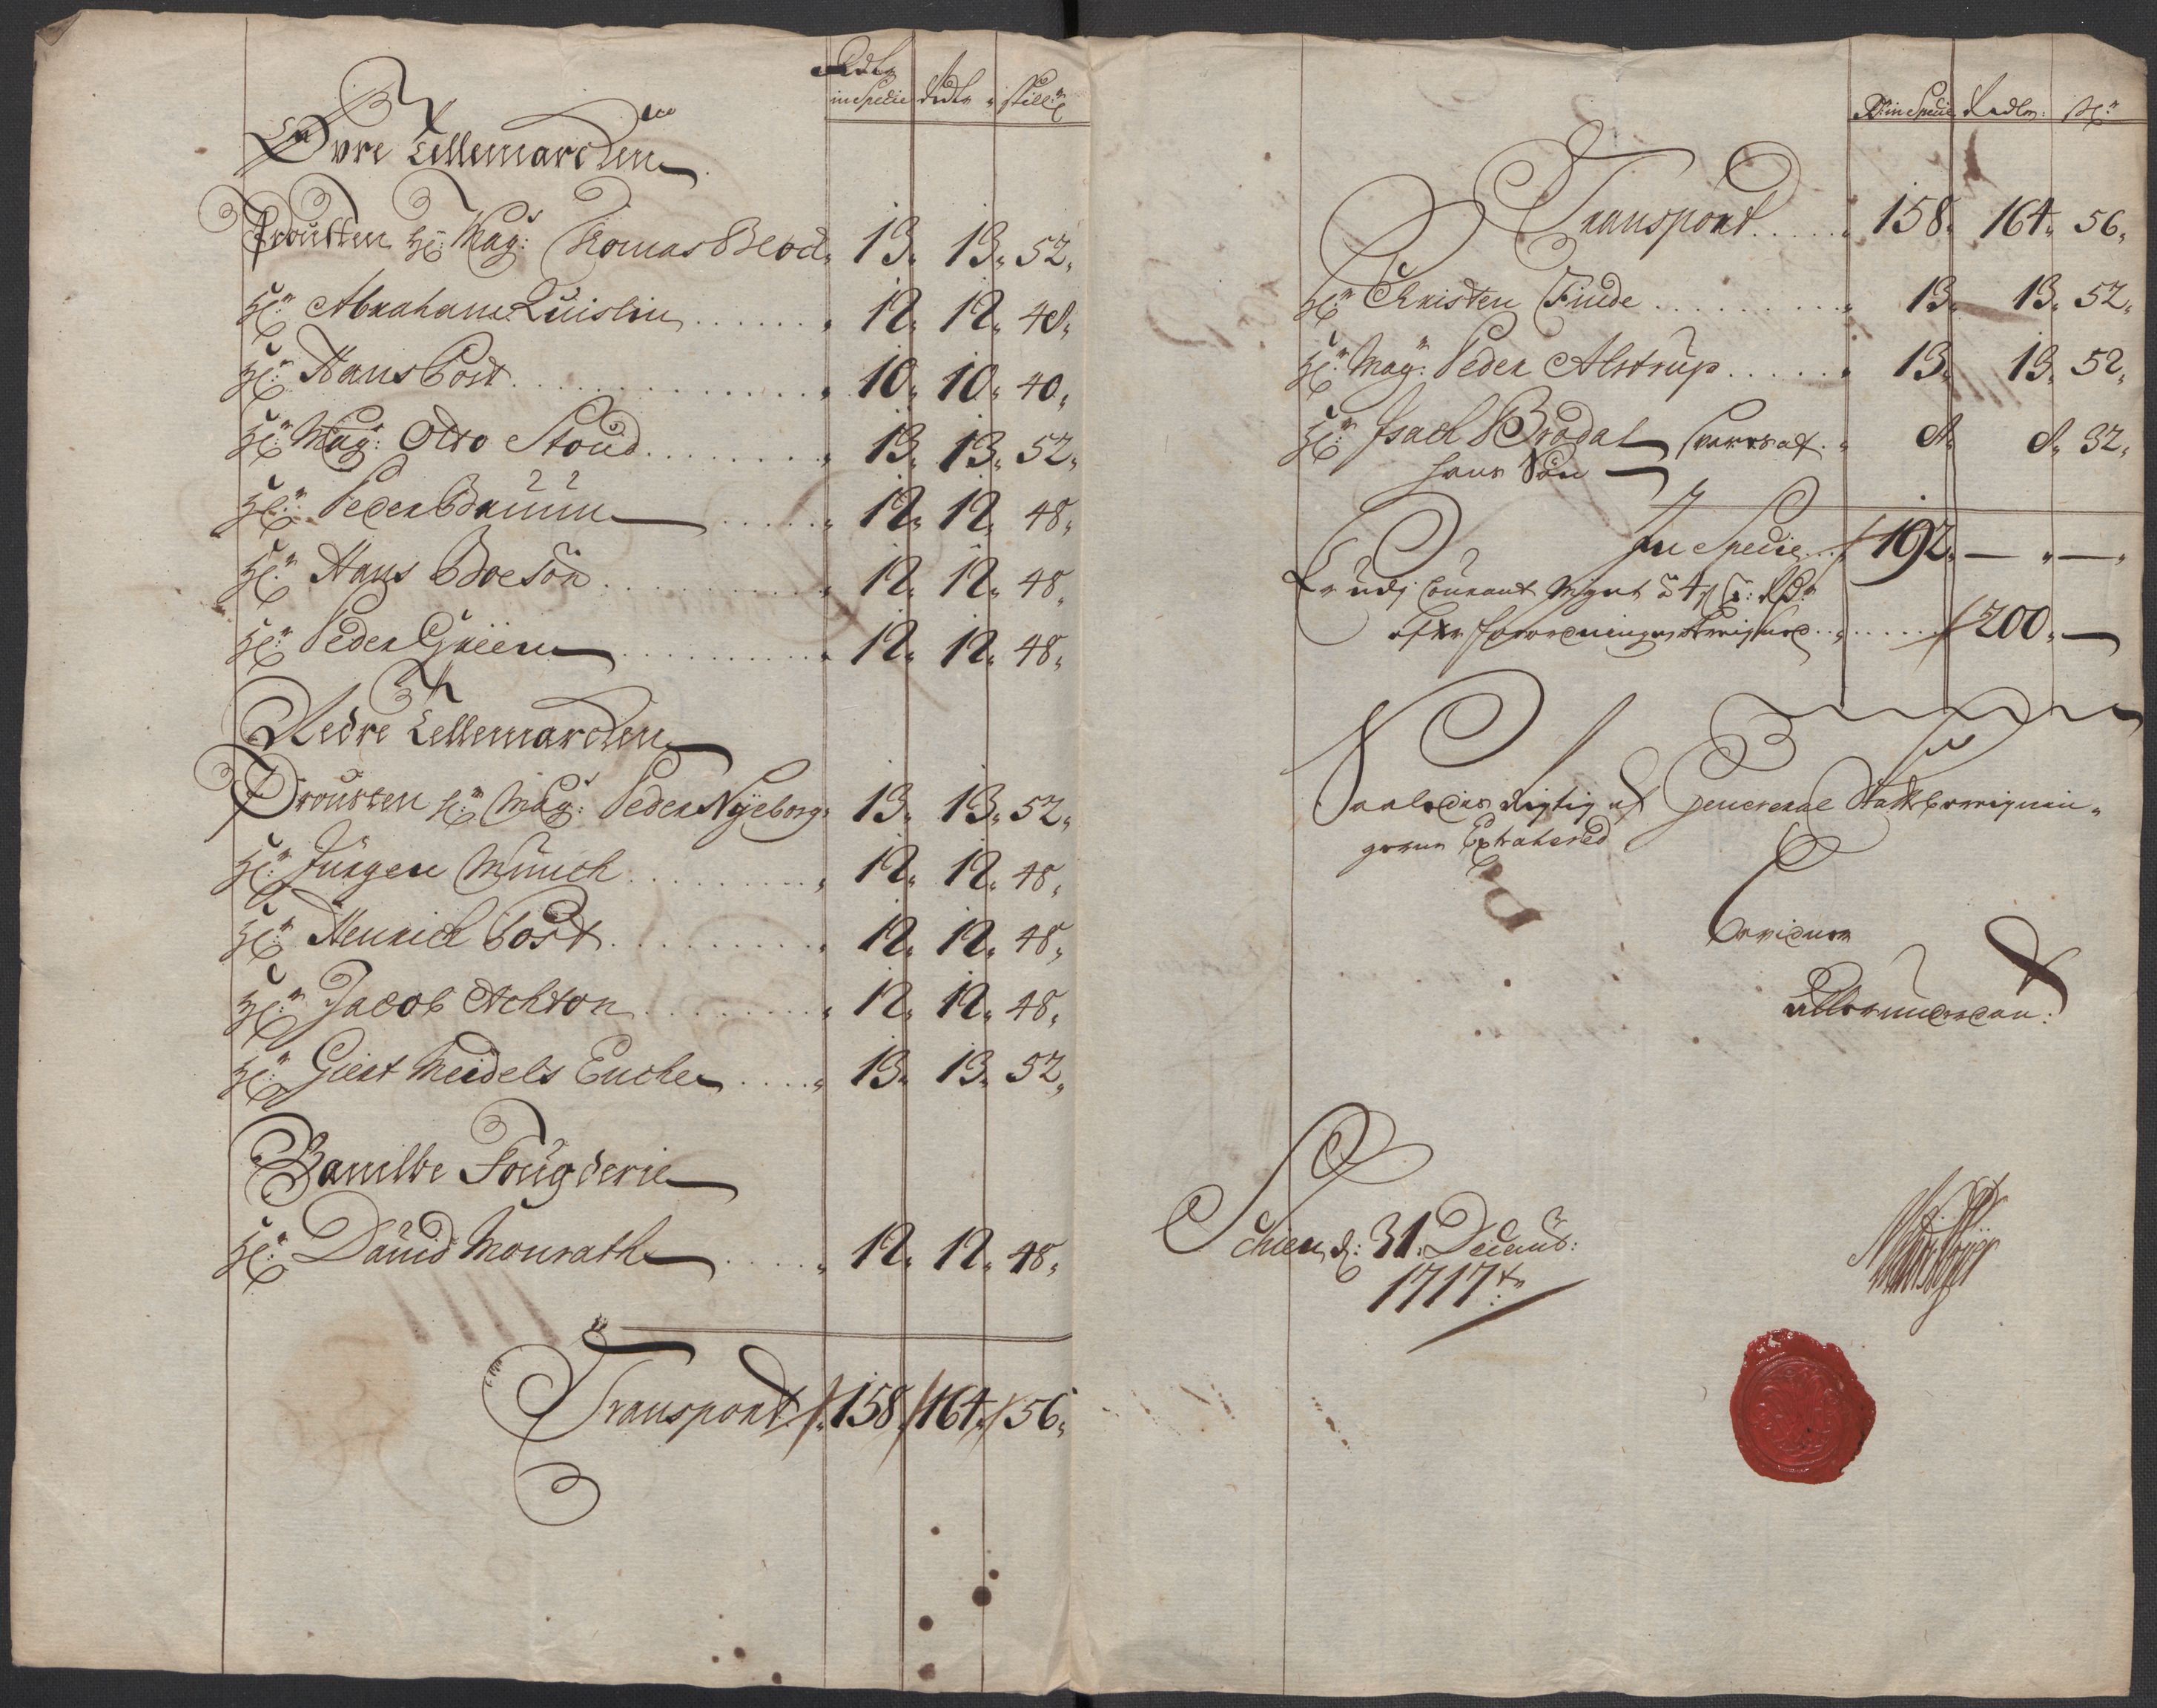 Rdlr
in Specie Rdlr skill:
Øvre Tellemarcken
Prousten Hr: Mag: Thomas Blod 13 13 52
Hr: Abraham Quislin 12 12 48
Hr: Hans Post 10 10 40
Hr: Mag: Otto Stoud 13 13 52
Hr: Peder Bruun 12 12 48
Hr: Hans Boesøn 12 12 48
Hr: Peder Griien 12 12 48
Nedre Tellemarcken
Prousten Hr: Mag: Peder Nÿeborg 13 13 52
Hr: Jürgen Münch 12 12 48
Hr: Henrich Post 12 12 48
Hr: Jacob Achton 12 12 48
Hr: Giert Meidels Encke 13 13 52
Bamble Fougderie
Hr: David Monrath 12 12 48
Transport 158 164 56
R: in Specie Rdlr: sk:
Transport 158 164 56
Hr: Christen Finde 13 13 52
Hr: Mag: Peder Alstrup 13 13 52
Hr: Isach Brodal svares af 8 8 32
hans Søn
In Specie 192 — —
Er udj Courant Mynt
efter forordningen 200 —
Saaledes Rigtig af Generenal
Extrahered
Schien d: 31 Decemb:
1717